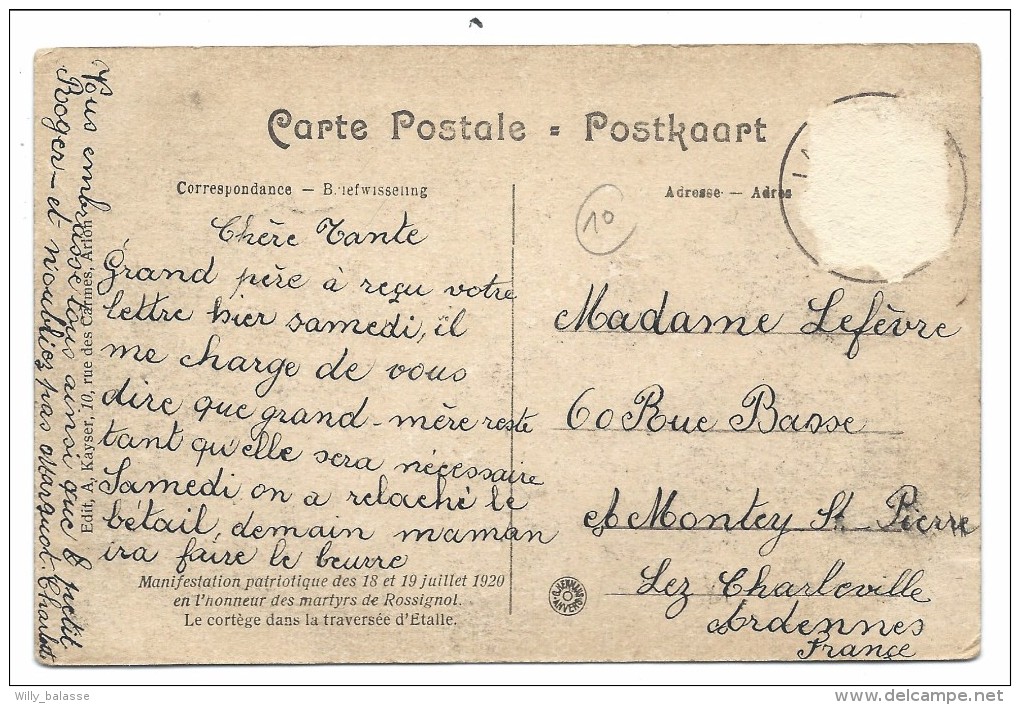 Carte Postale = Postkaart
Correspondance — Briefwisseling
Adresse — Adres
10
Chère Tante
Grand père à reçu votre
lettre hier samedi, il
me charge de vous
dire que grand-mère reste
tant qu'elle sera nécessaire
Samedi on a relaché le
bétail, demain maman
ira faire le beurre
Manifestation patriotique des 18 et 19 juillet 1920
en l'honneur des martyrs de Rossignol.
Le cortège dans la traversée d'Etalle.
Vous embrasse tous ainsi que le petit
Roger - et n'oubliez pas Marquot. Charlot
Edit, A. Kayser, 10, rue des Carmes, Arlon
Madame Lefèvre
60 Rue Basse
à Montcy St Pierre
Lez Charleville
Ardennes
France
ANVERS
Willy_balasse
www.delcampe.net